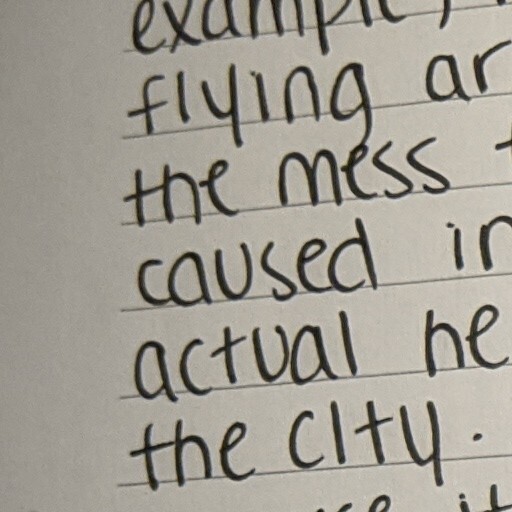 example,
flying ar
the mess
caused in
actual he
the city.
it